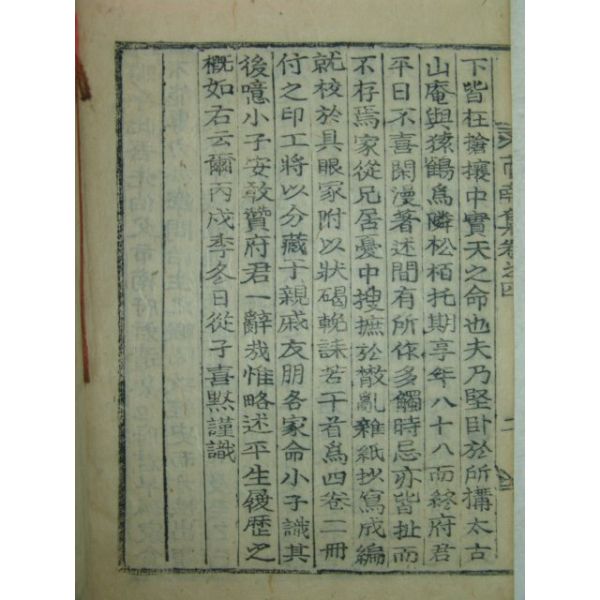 下皆在搶攘中實天之命也夫乃堅卧於所搆太古
山庵與猿鶴爲隣松栢托期享年八十八而終府君
平日不喜閑漫著述間有所作多觸時忌亦皆扯而
不存焉家從兄居憂中搜摭於散亂雜紙抄寫成編
就校於具眼家附以狀碣輓誄若干首爲四卷二冊
付之印工將以分藏于親戚友朋各家命小子識其
後噫小子安敢贊府君一辭哉惟略述平生履歷之
概如右云爾丙戌季冬日從子喜黙謹識
南集卷之四
二